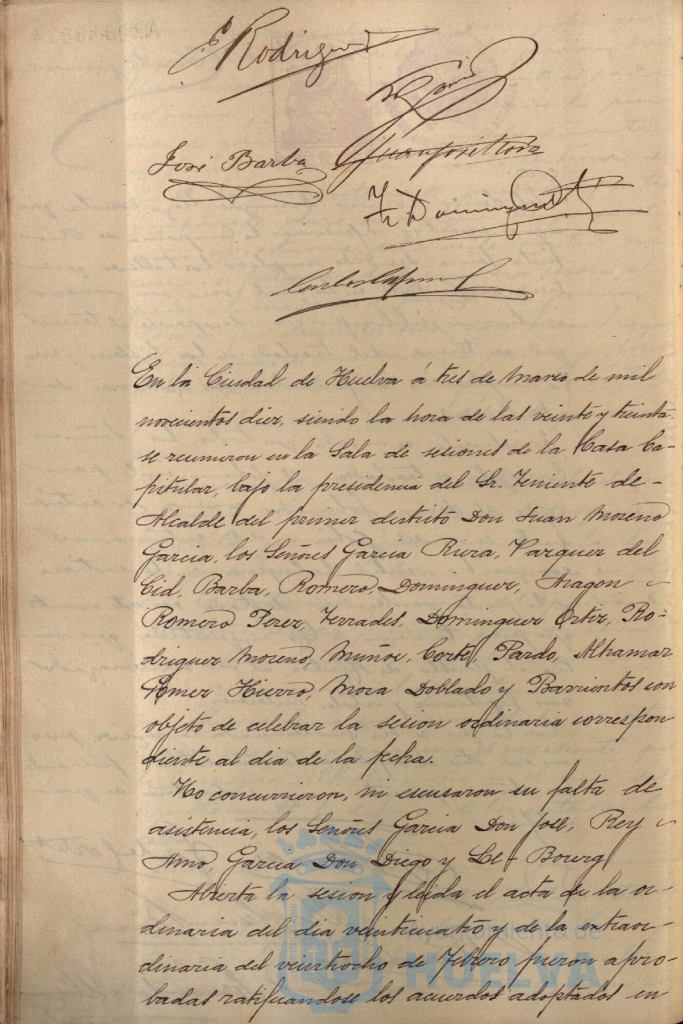 E. Rodriguez
José Barba
Juan José Mora
Fr. Dominguez
En la Ciudad de Huelva á tres de Marzo de mil
novecientos diez, siendo la hora de las veinte y treinta
se reunieron en la Sala de sesiones de la Casa Ca-
pitular, bajo la presidencia del Sr. Teniente de-
Alcalde del primer distrito Don Juan Moreno
Garcia, los Señores Garcia Riera, Vazquez del
Cid, Barba, Romero, Dominguez, Aragon
Romero Perez, Terrades, Dominguez Ortiz, Ro-
driguez Moreno, Muñoz, Corte, Pardo, Alhamar
Gomez Hierro, Mora Doblado y Barrientos con
objeto de celebrar la sesion ordinaria correspon
diente al dia de la fecha.
No concurrieron, ni escusaron su falta de
asistencia, los Señores Garcia Don José, Rey
Amo, Garcia Don Diego y Le-Bourg
Abierta la sesion y leida el acta de la or-
dinaria del dia veinticuatro y de la extraor-
dinaria del veintiocho de Febrero fueron apro-
badas ratificandose los acuerdos adoptados en
Ayuntamiento de
HUELVA